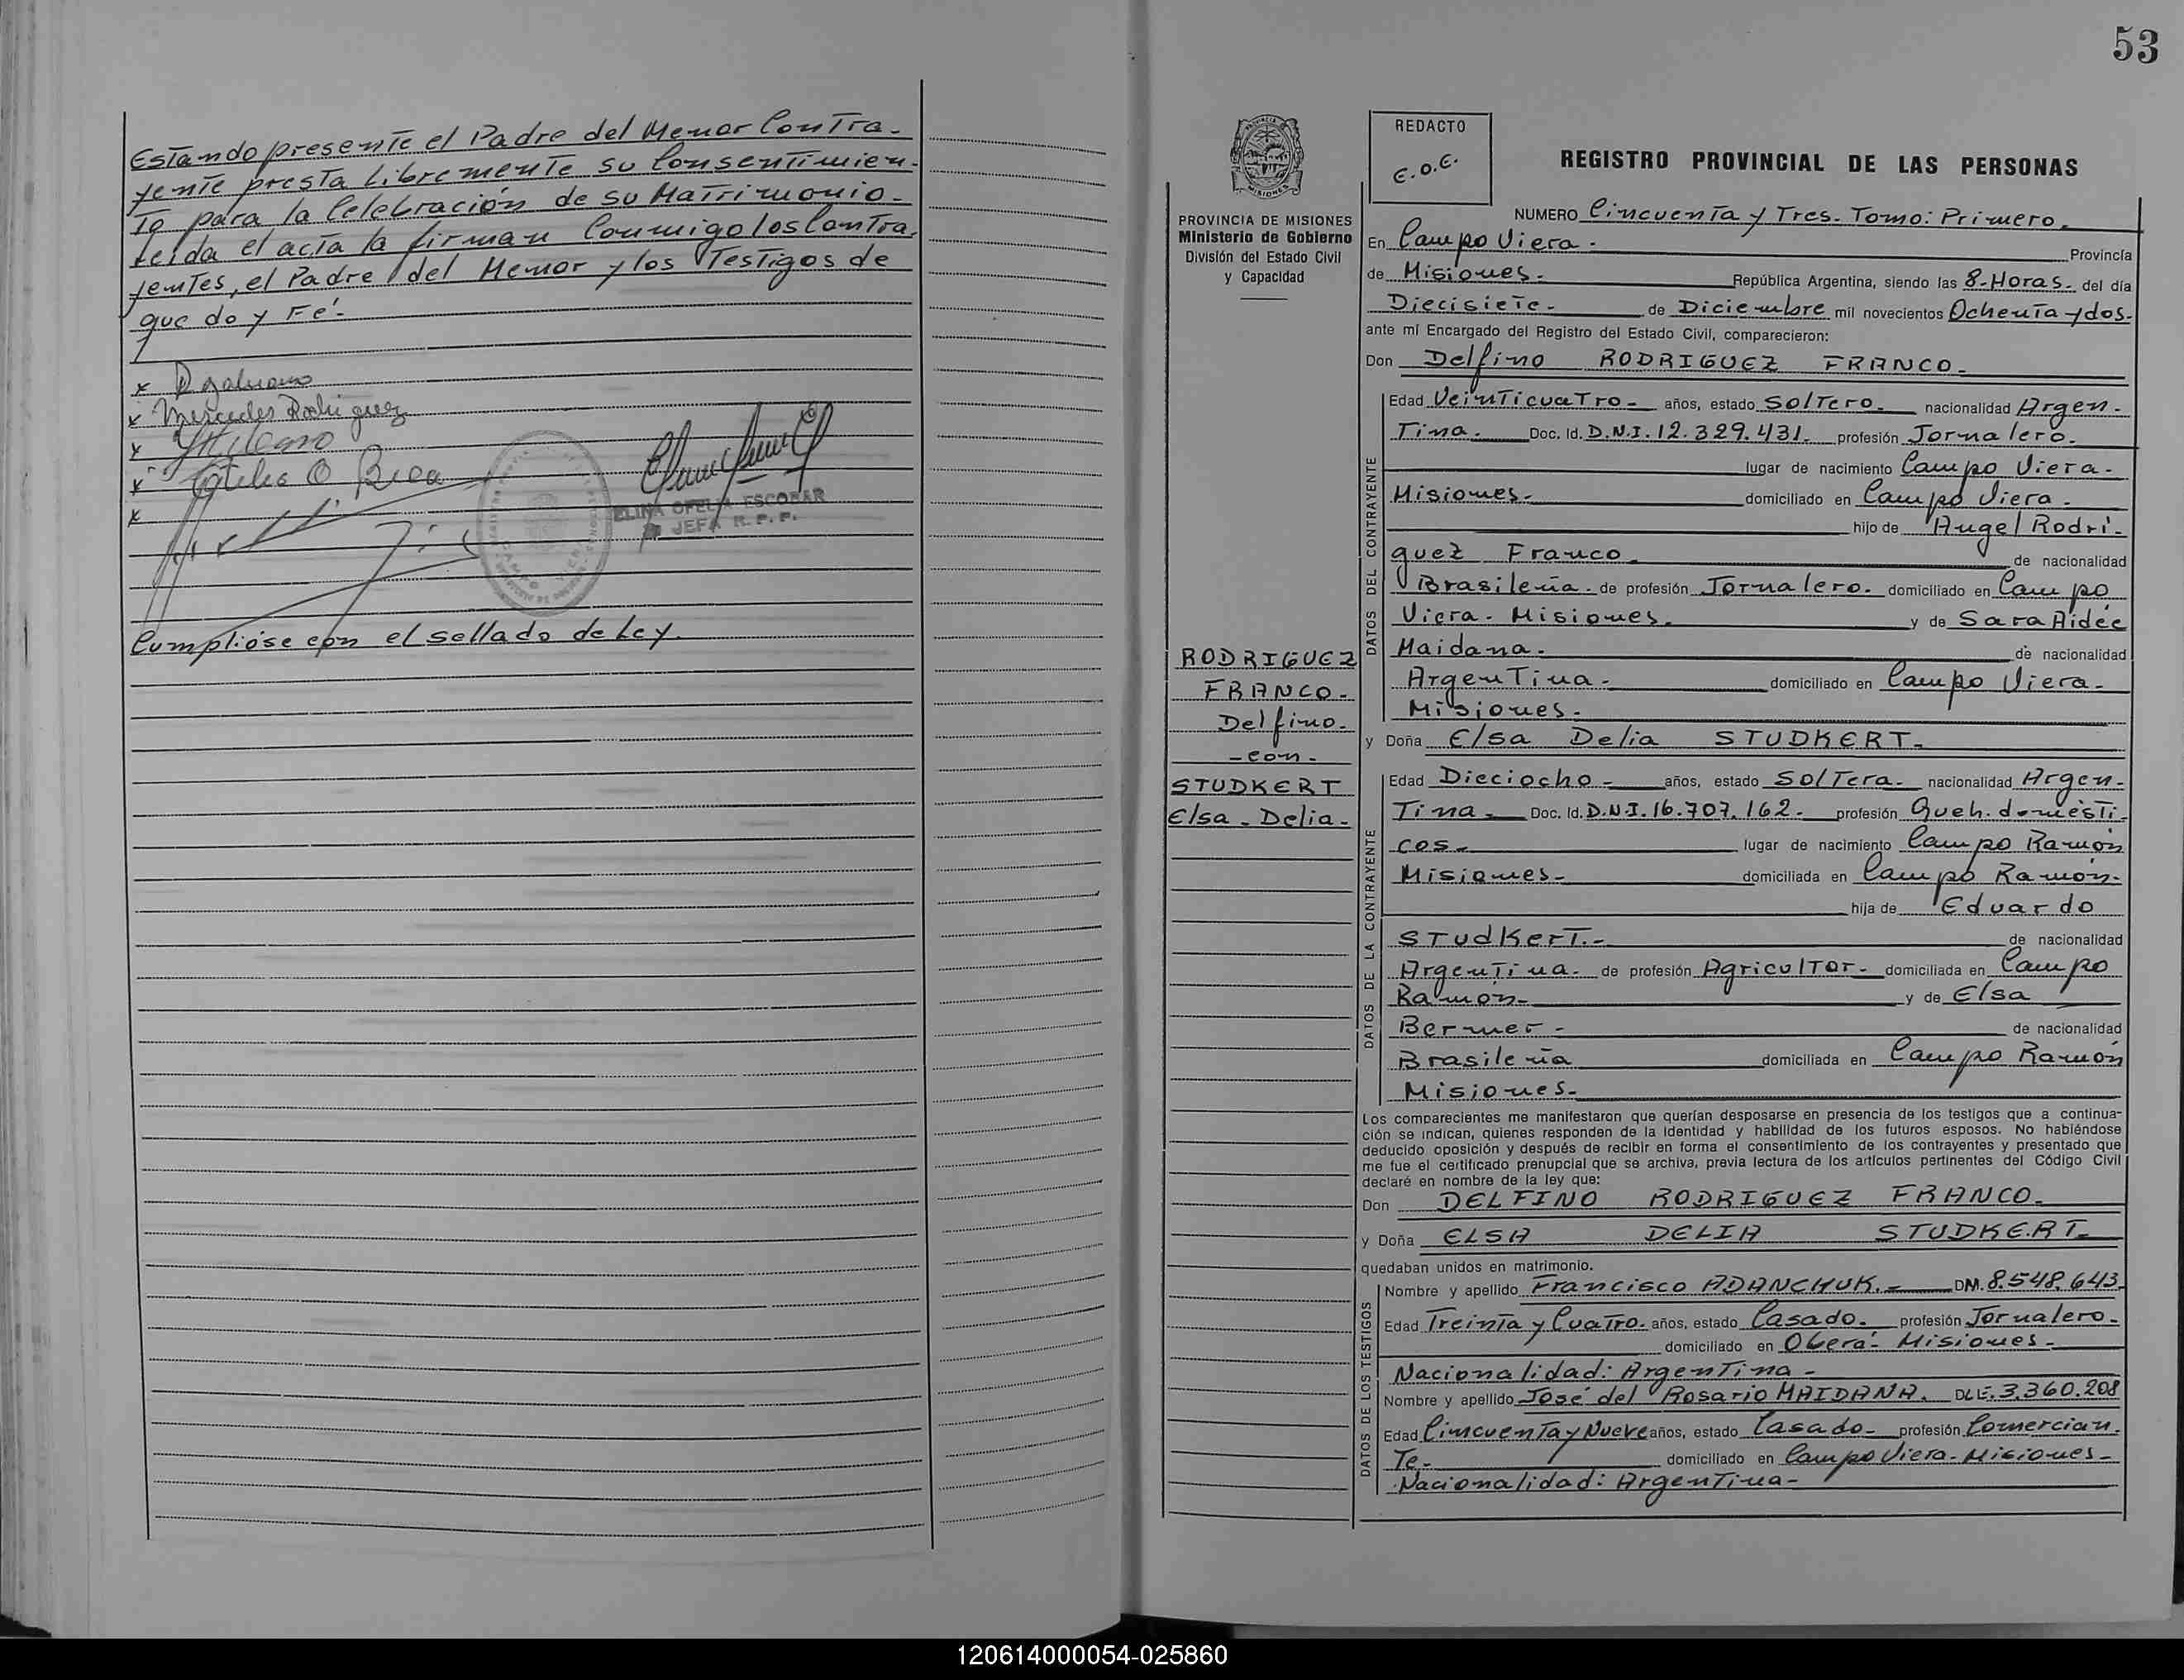 Estando presente el Padre del Menor Contra-
yente presta Libremente su Consentimien-
to para la Celebración de su Matrimonio-
Leída el acta la firman Conmigo los Contra-
yentes, el Padre del Menor y los Testigos de
que doy Fé.-
x R Galeano
x Mercedes Rodriguez
x
x
x
ELINA OFELIA ESCOBAR
JEFA R. P. P.
Cumplióse con el sellado de Ley.
53
REDACTO
E.O.E.
REGISTRO PROVINCIAL DE LAS PERSONAS
PROVINCIA DE MISIONES
Ministerio de Gobierno
División del Estado Civil
y Capacidad
NUMERO Cincuenta y Tres. Tomo: Primero.
En Campo Viera - Provincia
de Misiones - República Argentina, siendo las 8-Horas- del día
Diecisiete - de Diciembre mil novecientos Ochenta y dos-
ante mí Encargado del Registro del Estado Civil, comparecieron:
Don Delfino RODRIGUEZ FRANCO-
DATOS DEL CONTRAYENTE
Edad Veinticuatro- años, estado Soltero- nacionalidad Argen-
tina- Doc. Id. D.N.I. 12.329.431- profesión Jornalero-
lugar de nacimiento Campo Viera-
Misiones- domiciliado en Campo Viera-
hijo de Angel Rodri-
guez Franco- de nacionalidad
Brasileña- de profesión Jornalero- domiciliado en Campo
Viera- Misiones- y de Sara Aidée
Maidana- de nacionalidad
Argentina- domiciliado en Campo Viera-
Misiones-
RODRIGUEZ
FRANCO-
Delfino-
-con-
STUDKERT
Elsa-Delia-
y Doña Elsa Delia STUDKERT-
DATOS DE LA CONTRAYENTE
Edad Dieciocho- años, estado Soltera- nacionalidad Argen-
tina- Doc. Id. D.N.I. 16.707.162- profesión Queh. domésti-
cos- lugar de nacimiento Campo Ramón
Misiones- domiciliada en Campo Ramón-
hija de Eduardo
Studkert.- de nacionalidad
Argentina- de profesión Agricultor- domiciliada en Campo
Ramón- y de Elsa
Bermer- de nacionalidad
Brasileña domiciliada en Campo Ramón
Misiones-
Los comparecientes me manifestaron que querían desposarse en presencia de los testigos que a continua-
ción se indican, quienes responden de la identidad y habilidad de los futuros esposos. No habiéndose
deducido oposición y después de recibir en forma el consentimiento de los contrayentes y presentado que
me fue el certificado prenupcial que se archiva, previa lectura de los artículos pertinentes del Código Civil
declaré en nombre de la ley que:
Don DELFINO RODRIGUEZ FRANCO-
y Doña ELSA DELIA STUDKERT-
quedaban unidos en matrimonio.
DATOS DE LOS TESTIGOS
Nombre y apellido Francisco ADANCHUK.- DM. 8.548.643
Edad Treinta y Cuatro- años, estado Casado- profesión Jornalero-
domiciliado en Oberá- Misiones-
Nacionalidad: Argentina-
Nombre y apellido José del Rosario MAIDANA. DLE. 3.360.208
Edad Cincuenta y Nueve años, estado Casado- profesión Comercian-
te- domiciliado en Campo Viera-Misiones-
Nacionalidad: Argentina-
120614000054-025860